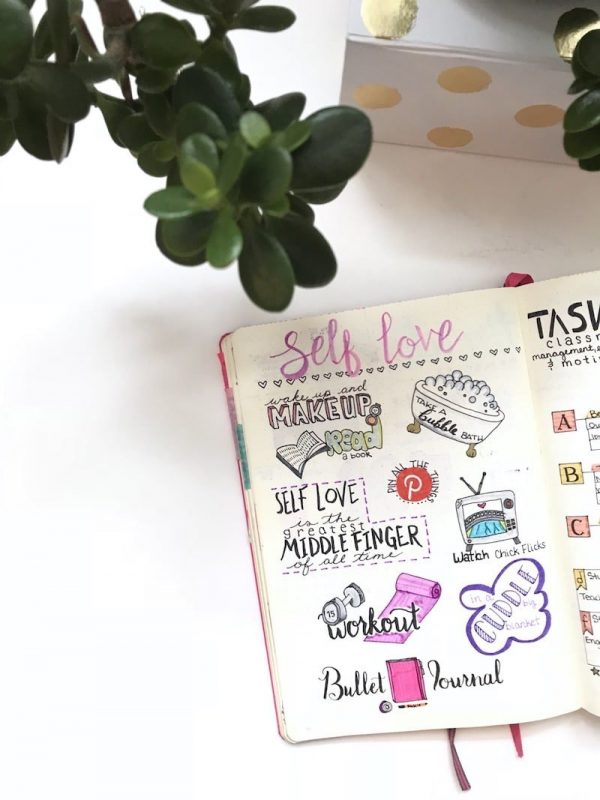 self love
wake up and
MAKEUP
Read
a book
TAKE A
bubble BATH
PIN ALL THE THINGS
SELF LOVE
is the
greatest
MIDDLE FINGER
of all time
Watch Chick Flicks
15
Workout
CUDDLE
in a big
blanket
Bullet Journal
TASK
classr
management,
&
moti
A
B
C
d
f